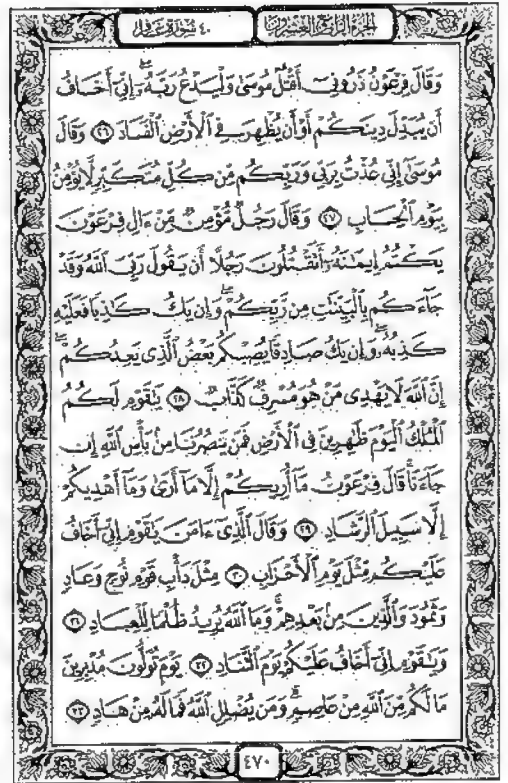 الجزء الرابع والعشرون
٤٠ سورة غافر
وَقَالَ فِرْعَوْنُ ذَرُونِىٓ أَقْتُلْ مُوسَىٰ وَلْيَدْعُ رَبَّهُۥٓ ۖ إِنِّىٓ أَخَافُ
أَن يُبَدِّلَ دِينَكُمْ أَوْ أَن يُظْهِرَ فِى ٱلْأَرْضِ ٱلْفَسَادَ ٢٦ وَقَالَ
مُوسَىٰٓ إِنِّى عُذْتُ بِرَبِّى وَرَبِّكُم مِّن كُلِّ مُتَكَبِّرٍ لَّا يُؤْمِنُ
بِيَوْمِ ٱلْحِسَابِ ٢٧ وَقَالَ رَجُلٌ مُّؤْمِنٌ مِّنْ ءَالِ فِرْعَوْنَ
يَكْتُمُ إِيمَـٰنَهُۥٓ أَتَقْتُلُونَ رَجُلًا أَن يَقُولَ رَبِّىَ ٱللَّهُ وَقَدْ
جَآءَكُم بِٱلْبَيِّنَـٰتِ مِن رَّبِّكُمْ ۖ وَإِن يَكُ كَـٰذِبًا فَعَلَيْهِ
كَذِبُهُۥ ۖ وَإِن يَكُ صَادِقًا يُصِبْكُم بَعْضُ ٱلَّذِى يَعِدُكُمْ ۖ
إِنَّ ٱللَّهَ لَا يَهْدِى مَنْ هُوَ مُسْرِفٌ كَذَّابٌ ٢٨ يَـٰقَوْمِ لَكُمُ
ٱلْمُلْكُ ٱلْيَوْمَ ظَـٰهِرِينَ فِى ٱلْأَرْضِ فَمَن يَنصُرُنَا مِنۢ بَأْسِ ٱللَّهِ إِن
جَآءَنَا ۚ قَالَ فِرْعَوْنُ مَآ أُرِيكُمْ إِلَّا مَآ أَرَىٰ وَمَآ أَهْدِيكُمْ
إِلَّا سَبِيلَ ٱلرَّشَادِ ٢٩ وَقَالَ ٱلَّذِىٓ ءَامَنَ يَـٰقَوْمِ إِنِّىٓ أَخَافُ
عَلَيْكُم مِّثْلَ يَوْمِ ٱلْأَحْزَابِ ٣٠ مِثْلَ دَأْبِ قَوْمِ نُوحٍ وَعَادٍ
وَثَمُودَ وَٱلَّذِينَ مِنۢ بَعْدِهِمْ ۚ وَمَا ٱللَّهُ يُرِيدُ ظُلْمًا لِّلْعِبَادِ ٣١
وَيَـٰقَوْمِ إِنِّىٓ أَخَافُ عَلَيْكُمْ يَوْمَ ٱلتَّنَادِ ٣٢ يَوْمَ تُوَلُّونَ مُدْبِرِينَ
مَا لَكُم مِّنَ ٱللَّهِ مِنْ عَاصِمٍ ۗ وَمَن يُضْلِلِ ٱللَّهُ فَمَا لَهُۥ مِنْ هَادٍ ٣٣
٤٧٠